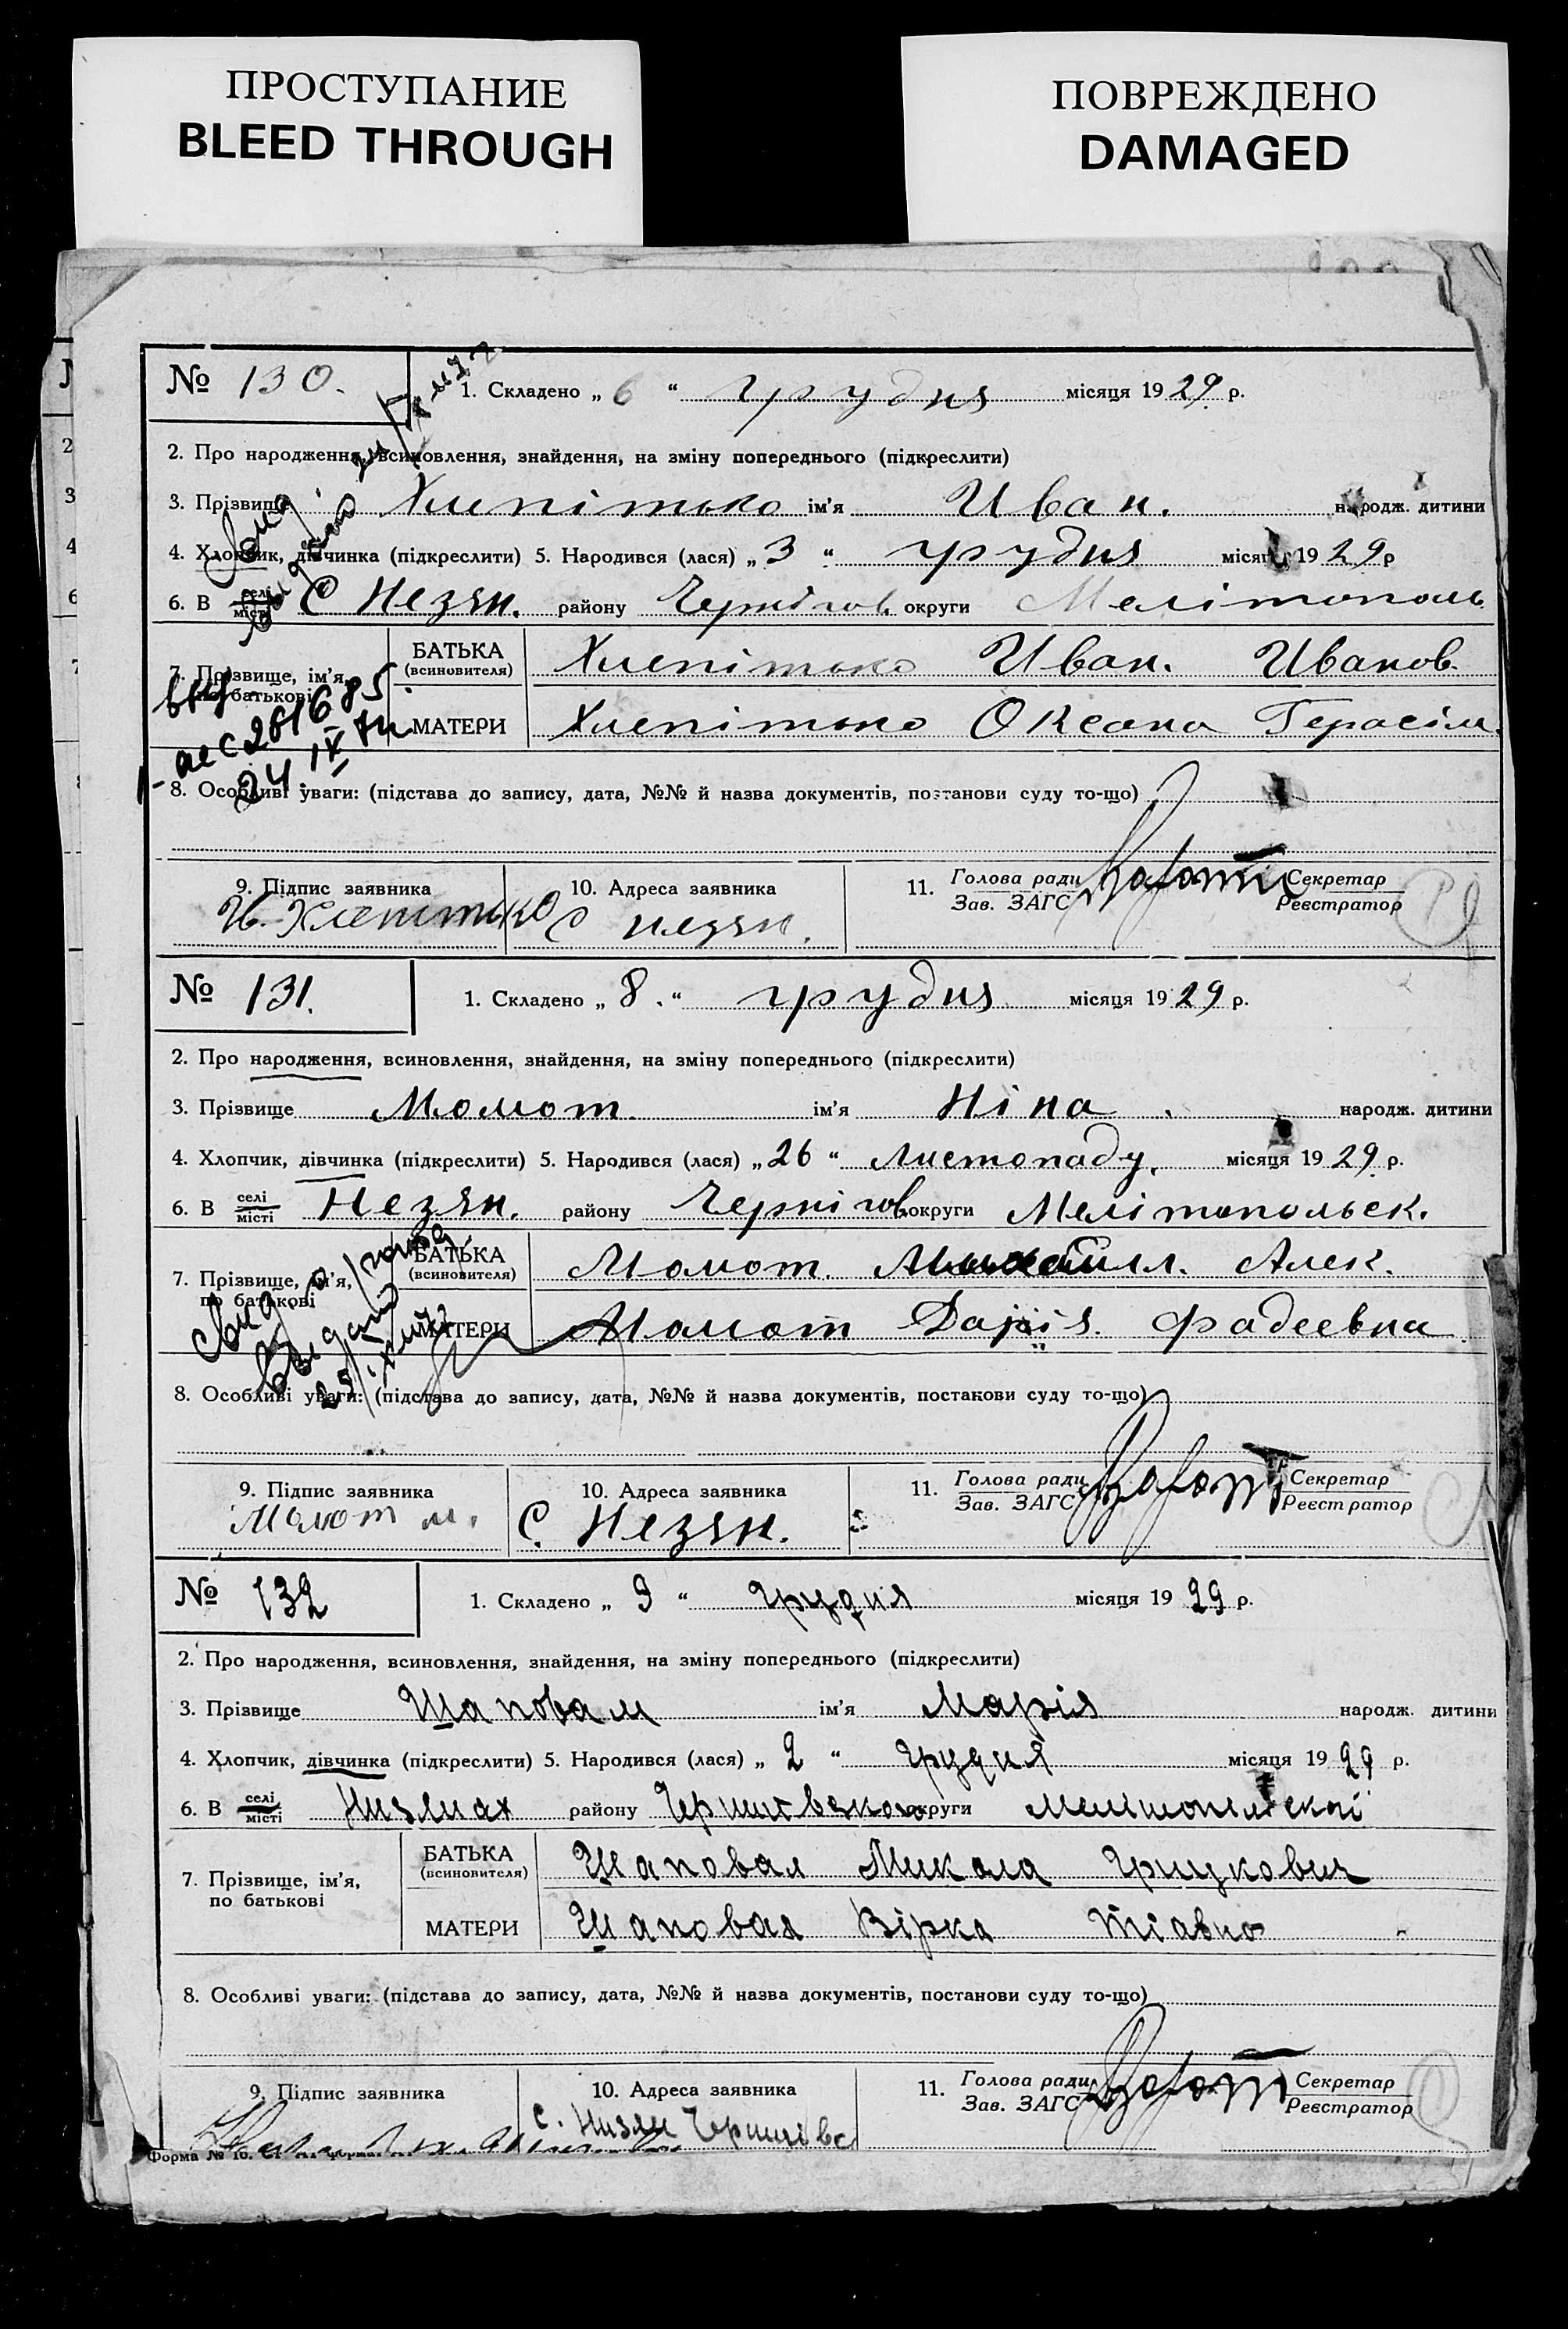 ПРОСТУПАНИЕ
BLEED THROUGH
ПОВРЕЖДЕНО
DAMAGED
№ 130.
1. Складено „ 6 “ грудня місяця 19 29 р.
2. Про народження, всиновлення, знайдення, на зміну попереднього (підкреслити)
3. Прізвище Хлепітько ім'я Иван. народж. дитини
4. Хлопчик, дівчинка (підкреслити) 5. Народився (лася) „ 3 “ грудня місяця 19 29 р
6. В селі/місті С Незян. району Чернігов. округи Мелітополь
7. Прізвище, ім'я, по батькові
БАТЬКА (всиновителя) Хлепітько Иван. Иванов.
МАТЕРИ Хлепітько Оксана Герасім.
24 IX
8. Особливі уваги: (підстава до запису, дата, №№ й назва документів, постанови суду то-що)
9. Підпис заявника
И. Хлепітько
10. Адреса заявника
С незян.
11. Голова ради/Зав. ЗАГС Секретар/Реєстратор
№ 131.
1. Складено „ 8. “ грудня місяця 19 29 р.
2. Про народження, всиновлення, знайдення, на зміну попереднього (підкреслити)
3. Прізвище Момот. ім'я Ніна. народж. дитини
4. Хлопчик, дівчинка (підкреслити) 5. Народився (лася) „ 26 “ Листопаду. місяця 19 29 р.
6. В селі/місті Незян. району Чернігов. округи Мелітопольск.
7. Прізвище, ім'я, по батькові
БАТЬКА (всиновителя) Момот. Алек.
МАТЕРИ Момот Дарія. Фадеевна
8. Особливі уваги: (підстава до запису, дата, №№ й назва документів, постанови суду то-що)
9. Підпис заявника
Момот м.
10. Адреса заявника
С. Незян.
11. Голова ради/Зав. ЗАГС Секретар/Реєстратор
№ 132
1. Складено „ 9 “ грудня місяця 19 29 р.
2. Про народження, всиновлення, знайдення, на зміну попереднього (підкреслити)
3. Прізвище Шаповал ім'я Марія народж. дитини
4. Хлопчик, дівчинка (підкреслити) 5. Народився (лася) „ 2 “ грудня місяця 19 29 р.
6. В селі/місті Низянах району округи
7. Прізвище, ім'я, по батькові
БАТЬКА (всиновителя) Шаповал Микола Грицкович
МАТЕРИ Шаповал Вірка
8. Особливі уваги: (підстава до запису, дата, №№ й назва документів, постанови суду то-що)
9. Підпис заявника
10. Адреса заявника
с. Низян
11. Голова ради/Зав. ЗАГС Секретар/Реєстратор